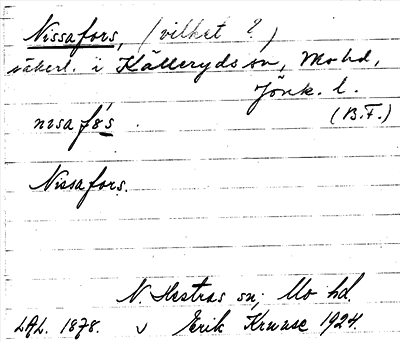 Nissafors, (vilket ?)
säkerl. i Källeryds sn, Mo hd,
Jönk. l.
(B.F.)
nısafó̀s
Nissafors.
N. Hestras sn; Mo hd.
LAL. 1878. Erik Kruase 1924.